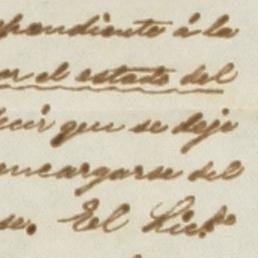 pondiente á la
el estado del
cir que se deje
encargarse del
se. El Lic.do